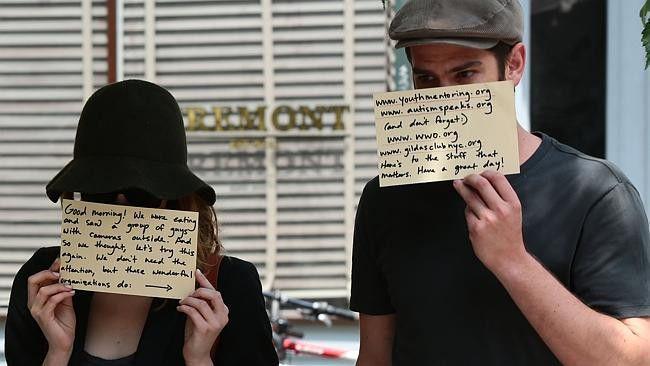 REMONT
Good morning! We were eating
and saw a group of guys
with cameras outside. And
so we thought, let's try this
again. We don't need the
attention, but these wonderful
organizations do: →
www.youthmentoring.org
www.autismspeaks.org
(and don't forget!)
www.wwo.org
www.gildasclubnyc.org
Here's to the stuff that
matters. Have a great day!